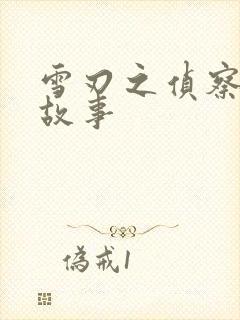 雪刃之偵察
故事
偽戒1